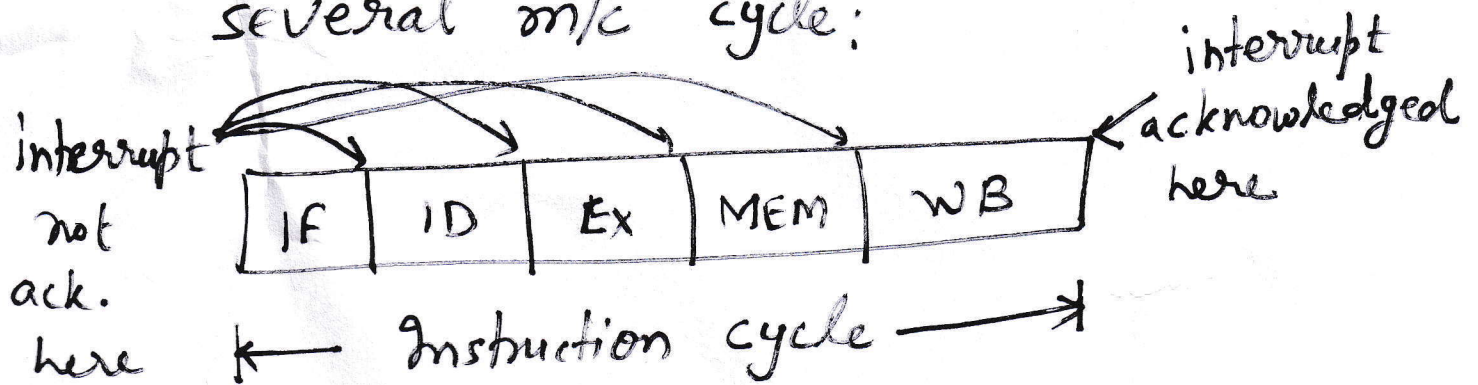 several m/c cycle:
interrupt
not
ack.
here
IF ID EX MEM WB
interrupt
acknowledged
here
Instruction cycle